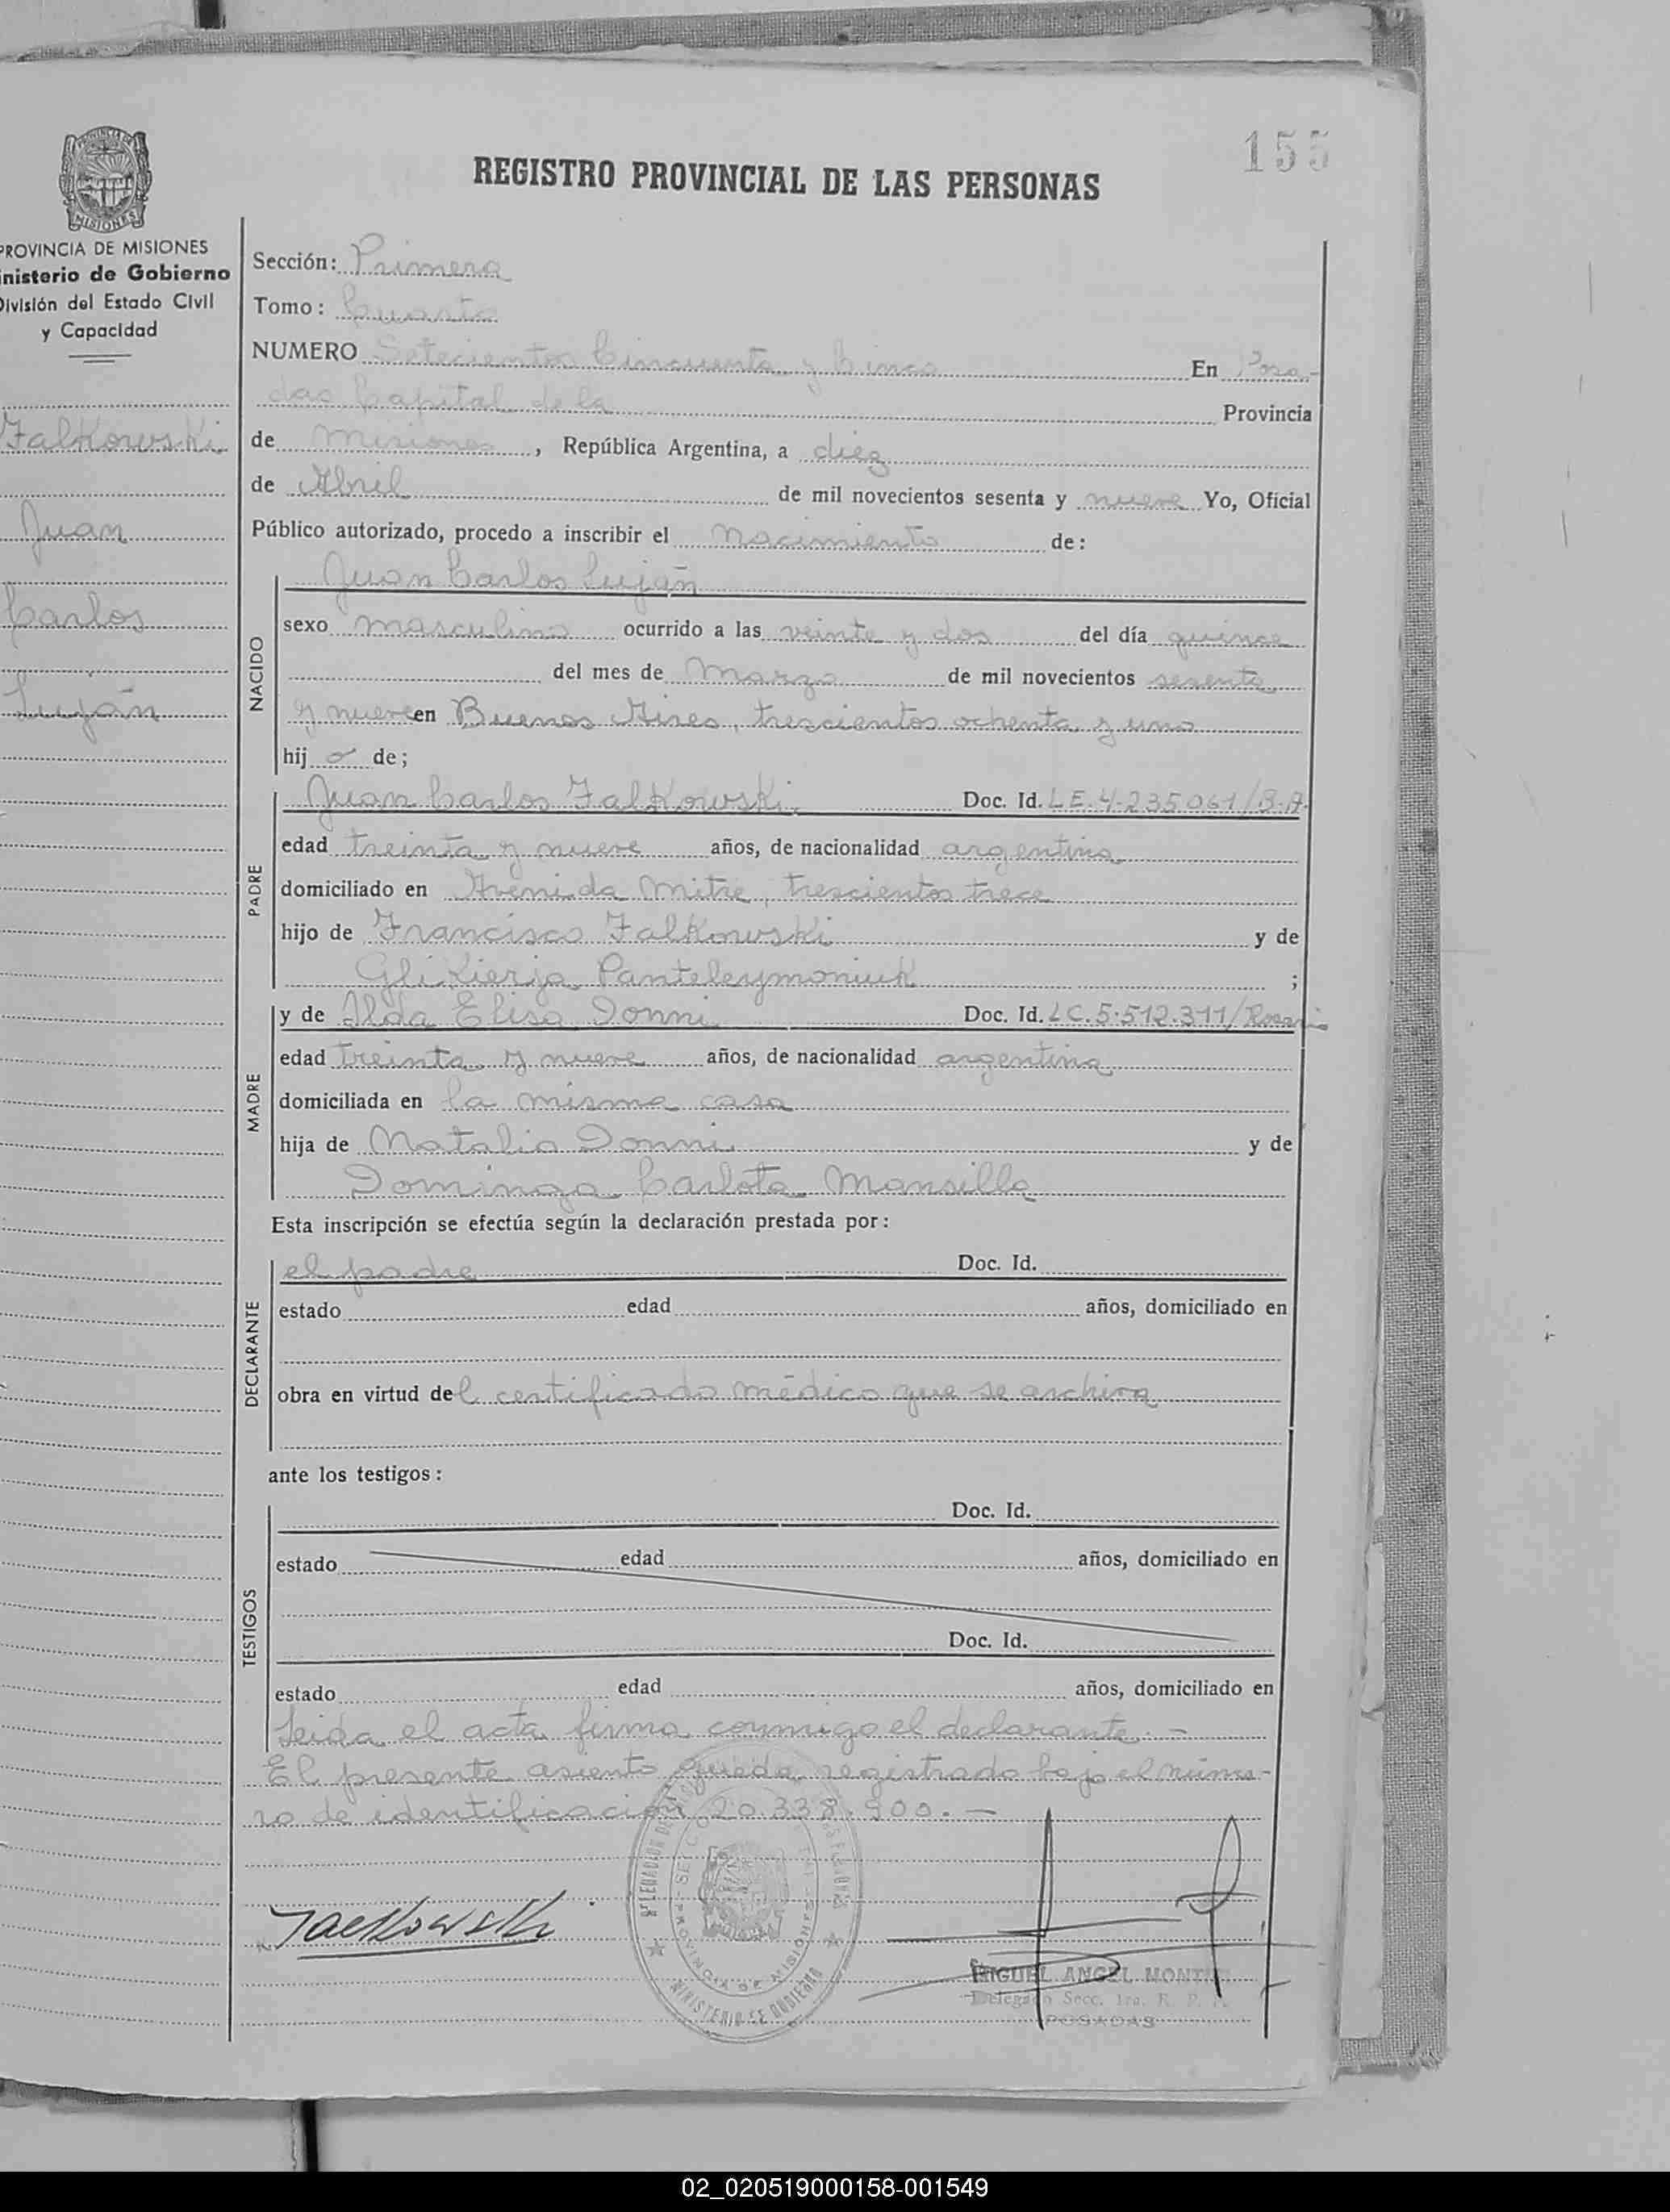 155
REGISTRO PROVINCIAL DE LAS PERSONAS
PROVINCIA DE MISIONES
inisterio de Gobierno
División del Estado Civil
y Capacidad
Falkowski
Juan
Carlos
Luján
Sección: Primera
Tomo: Cuarto
NUMERO Setecientos Cincuenta y Cinco En Posa-
das Capital de la Provincia
de Misiones, República Argentina, a diez
de Abril de mil novecientos sesenta y nueve Yo, Oficial
Público autorizado, procedo a inscribir el Nacimiento de:
NACIDO
Juan Carlos Luján
sexo masculino ocurrido a las veinte y dos del día quince
del mes de Marzo de mil novecientos sesenta
y nueve en Buenos Aires, trescientos ochenta y uno
hijo de;
PADRE
Juan Carlos Falkowski Doc. Id. L.E. 4.235061/B.A.
edad treinta y nueve años, de nacionalidad argentina
domiciliado en Avenida Mitre, trescientos trece
hijo de Francisco Falkowski y de
Glikierja Panteleymoniuk ;
MADRE
y de Ilda Elisa Donni Doc. Id. L.C. 5.512.311/Rosario
edad treinta y nueve años, de nacionalidad argentina
domiciliada en la misma casa
hija de Natalio Donni y de
Dominga Carlota Mansilla
Esta inscripción se efectúa según la declaración prestada por:
DECLARANTE
el padre Doc. Id.
estado edad años, domiciliado en
obra en virtud del certificado médico que se archiva
ante los testigos:
TESTIGOS
Doc. Id.
estado edad años, domiciliado en
Doc. Id.
estado edad años, domiciliado en
Leida el acta firma conmigo el declarante.-
El presente asiento queda registrado bajo el núme-
ro de identificación 20.338.900.-
Falkowski
PROVINCIA DE MISIONES
MINISTERIO DE GOBIERNO
MIGUEL ANGEL MONTI
Delegado Secc. 1ra. R. P. P.
POSADAS
02_020519000158-001549